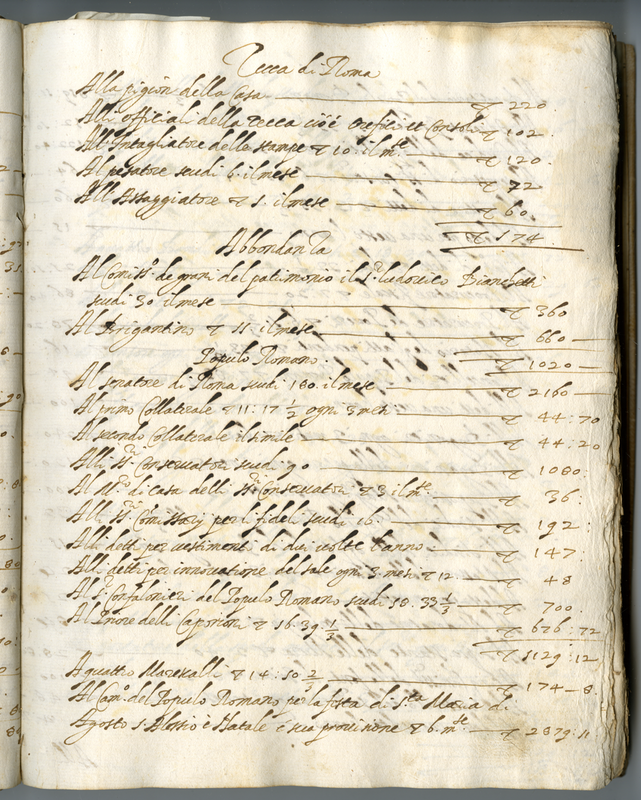 Zecca di Roma
Alla pigion della Casa ▽ 220
Alli officiali della Zecca cioè Orefici et Consoli ▽ 102
All'Intagliatore delle stampe ▽ 10 il mse ▽ 120
Al pesatore scudi 6 il mese ▽ 72
All'Assaggiatore ▽ 5. il mese ▽ 60
▽ 574
Abbondanza
Al Comiss.o de grani del patrimonio il S.r ludovico Bianchetti
scudi 30 il mese ▽ 360
Al Brigantino ▽ 55 il mese ▽ 660
Populo Romano. ▽ 1020
Al senatore di Roma scudi 180. il mese ▽ 2160
Al primo Collaterale ▽ 11: 17 1/2 ogni 3 mesi ▽ 44: 70
Al secondo Collaterale il simile ▽ 44: 20
Alli SS.ri Conservatori scudi 90 ▽ 1080:
Al M.ro di casa delli SS.ri Conservatori ▽ 3 il mse. ▽ 36:
Alli SS.ri Comissarij per li fideli scudi 16. ▽ 192:
Alli detti per vestimenti di due volte l'anno ▽ 147:
Alli detti per innovatione del sale ogni 3 mesi ▽ 12 ▽ 48
Al S.r Confalonieri del Populo Romano scudi 58. 33 1/3 ▽ 700.
Al Priore delli Caporioni ▽ 56. 39 1/3 ▽ 676: 72
▽ 5129: 12
A quattro Marescalli ▽ 14: 50: 2 ▽ 174 8
Al Cam.o del Populo Romano per la festa di S.ta Maria di
Agosto s. Alessio è Natale è sua provisione ▽ 6. mse ▽ 2879: 11